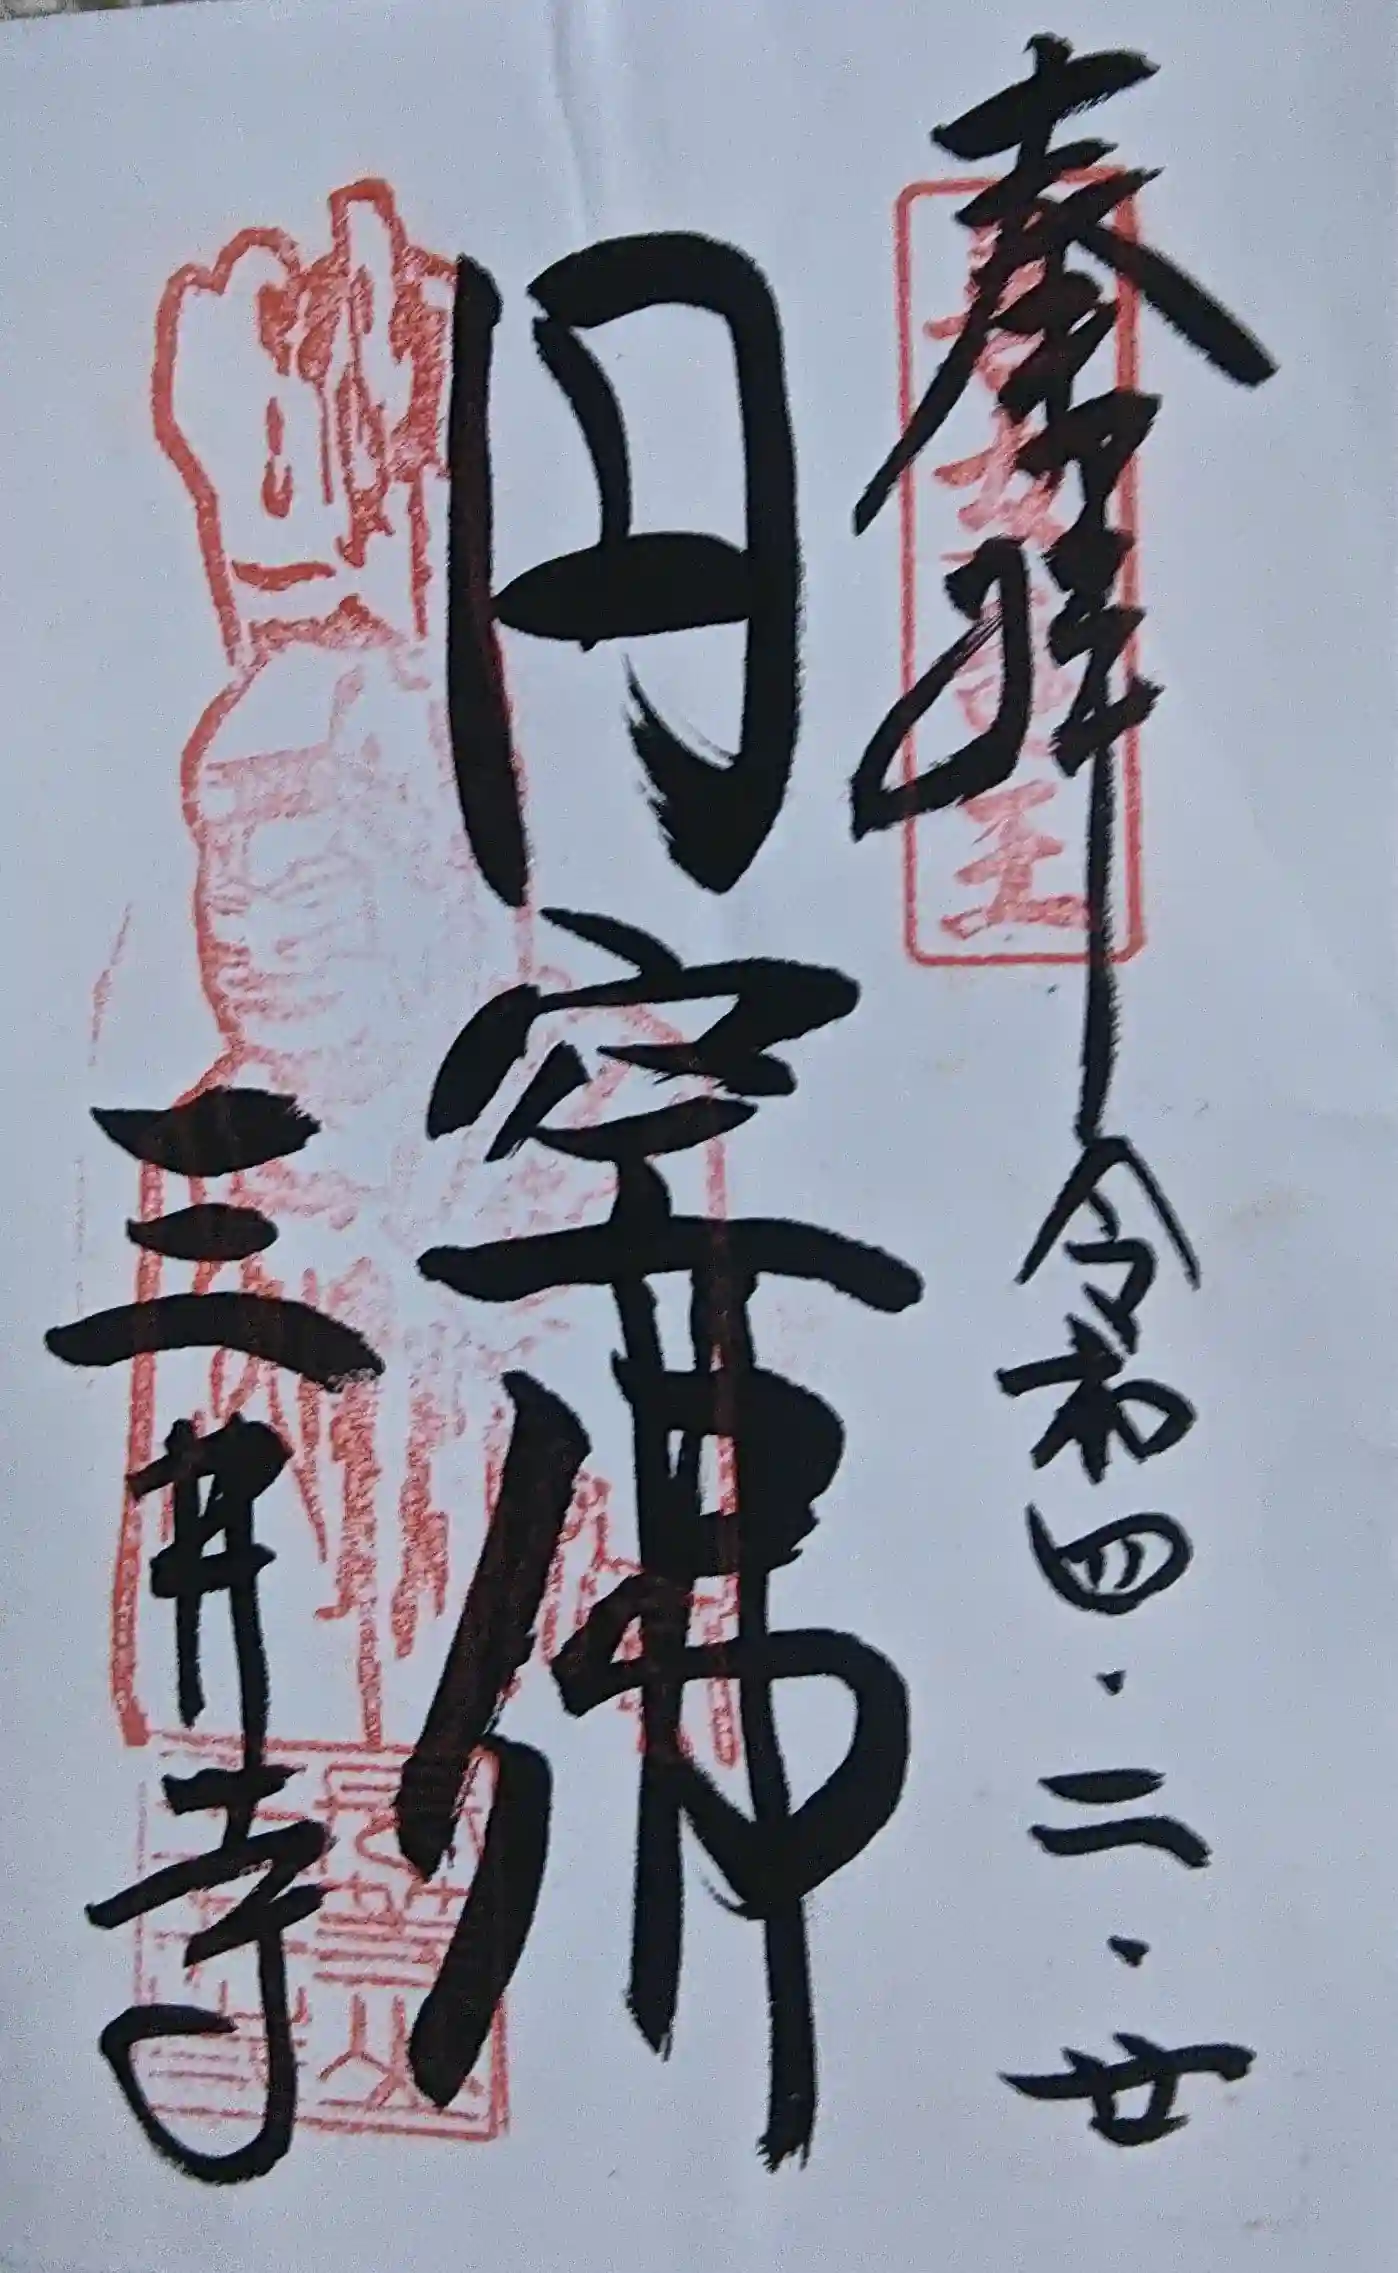 奉拝 令和四・二・廿
円空佛
三井寺